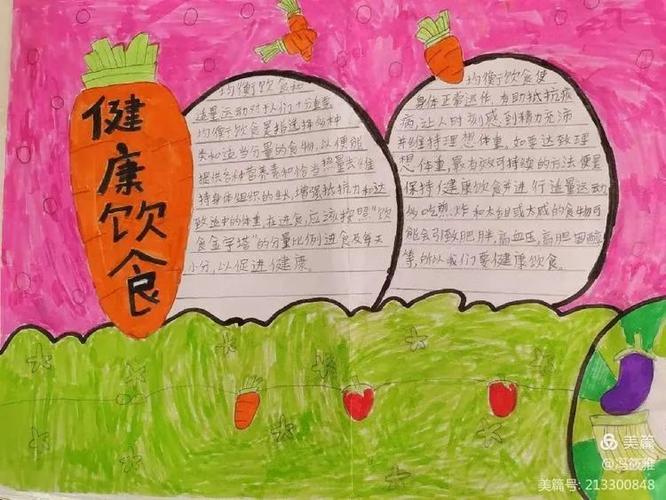 健康饮食
均衡饮食和
适量运动对我们十分重要
均衡饮食是指选择多种
类和适当分量的食物,以便能
提供各种营养素和恰当热量去维
持身体组织的生长,增强抵抗力和达
致适中的体重,在进食,应该按照“饮
食金字塔”的分量比例进食及每天
小分,以促进健康。
均衡饮食使
身体正常运作,有助抵抗疾
病,让人时刻感到精力充沛
并维持理想体重,如要达致理
想体重,最有效可持续的方法便是
保持健康饮食并进行适量运动
如吃煎、炸和太甜或太咸的食物可
能会引致肥胖,高血压,高胆固醇
等,所以我们要健康饮食。
美篇
@冯筱雅
美篇号: 213300848